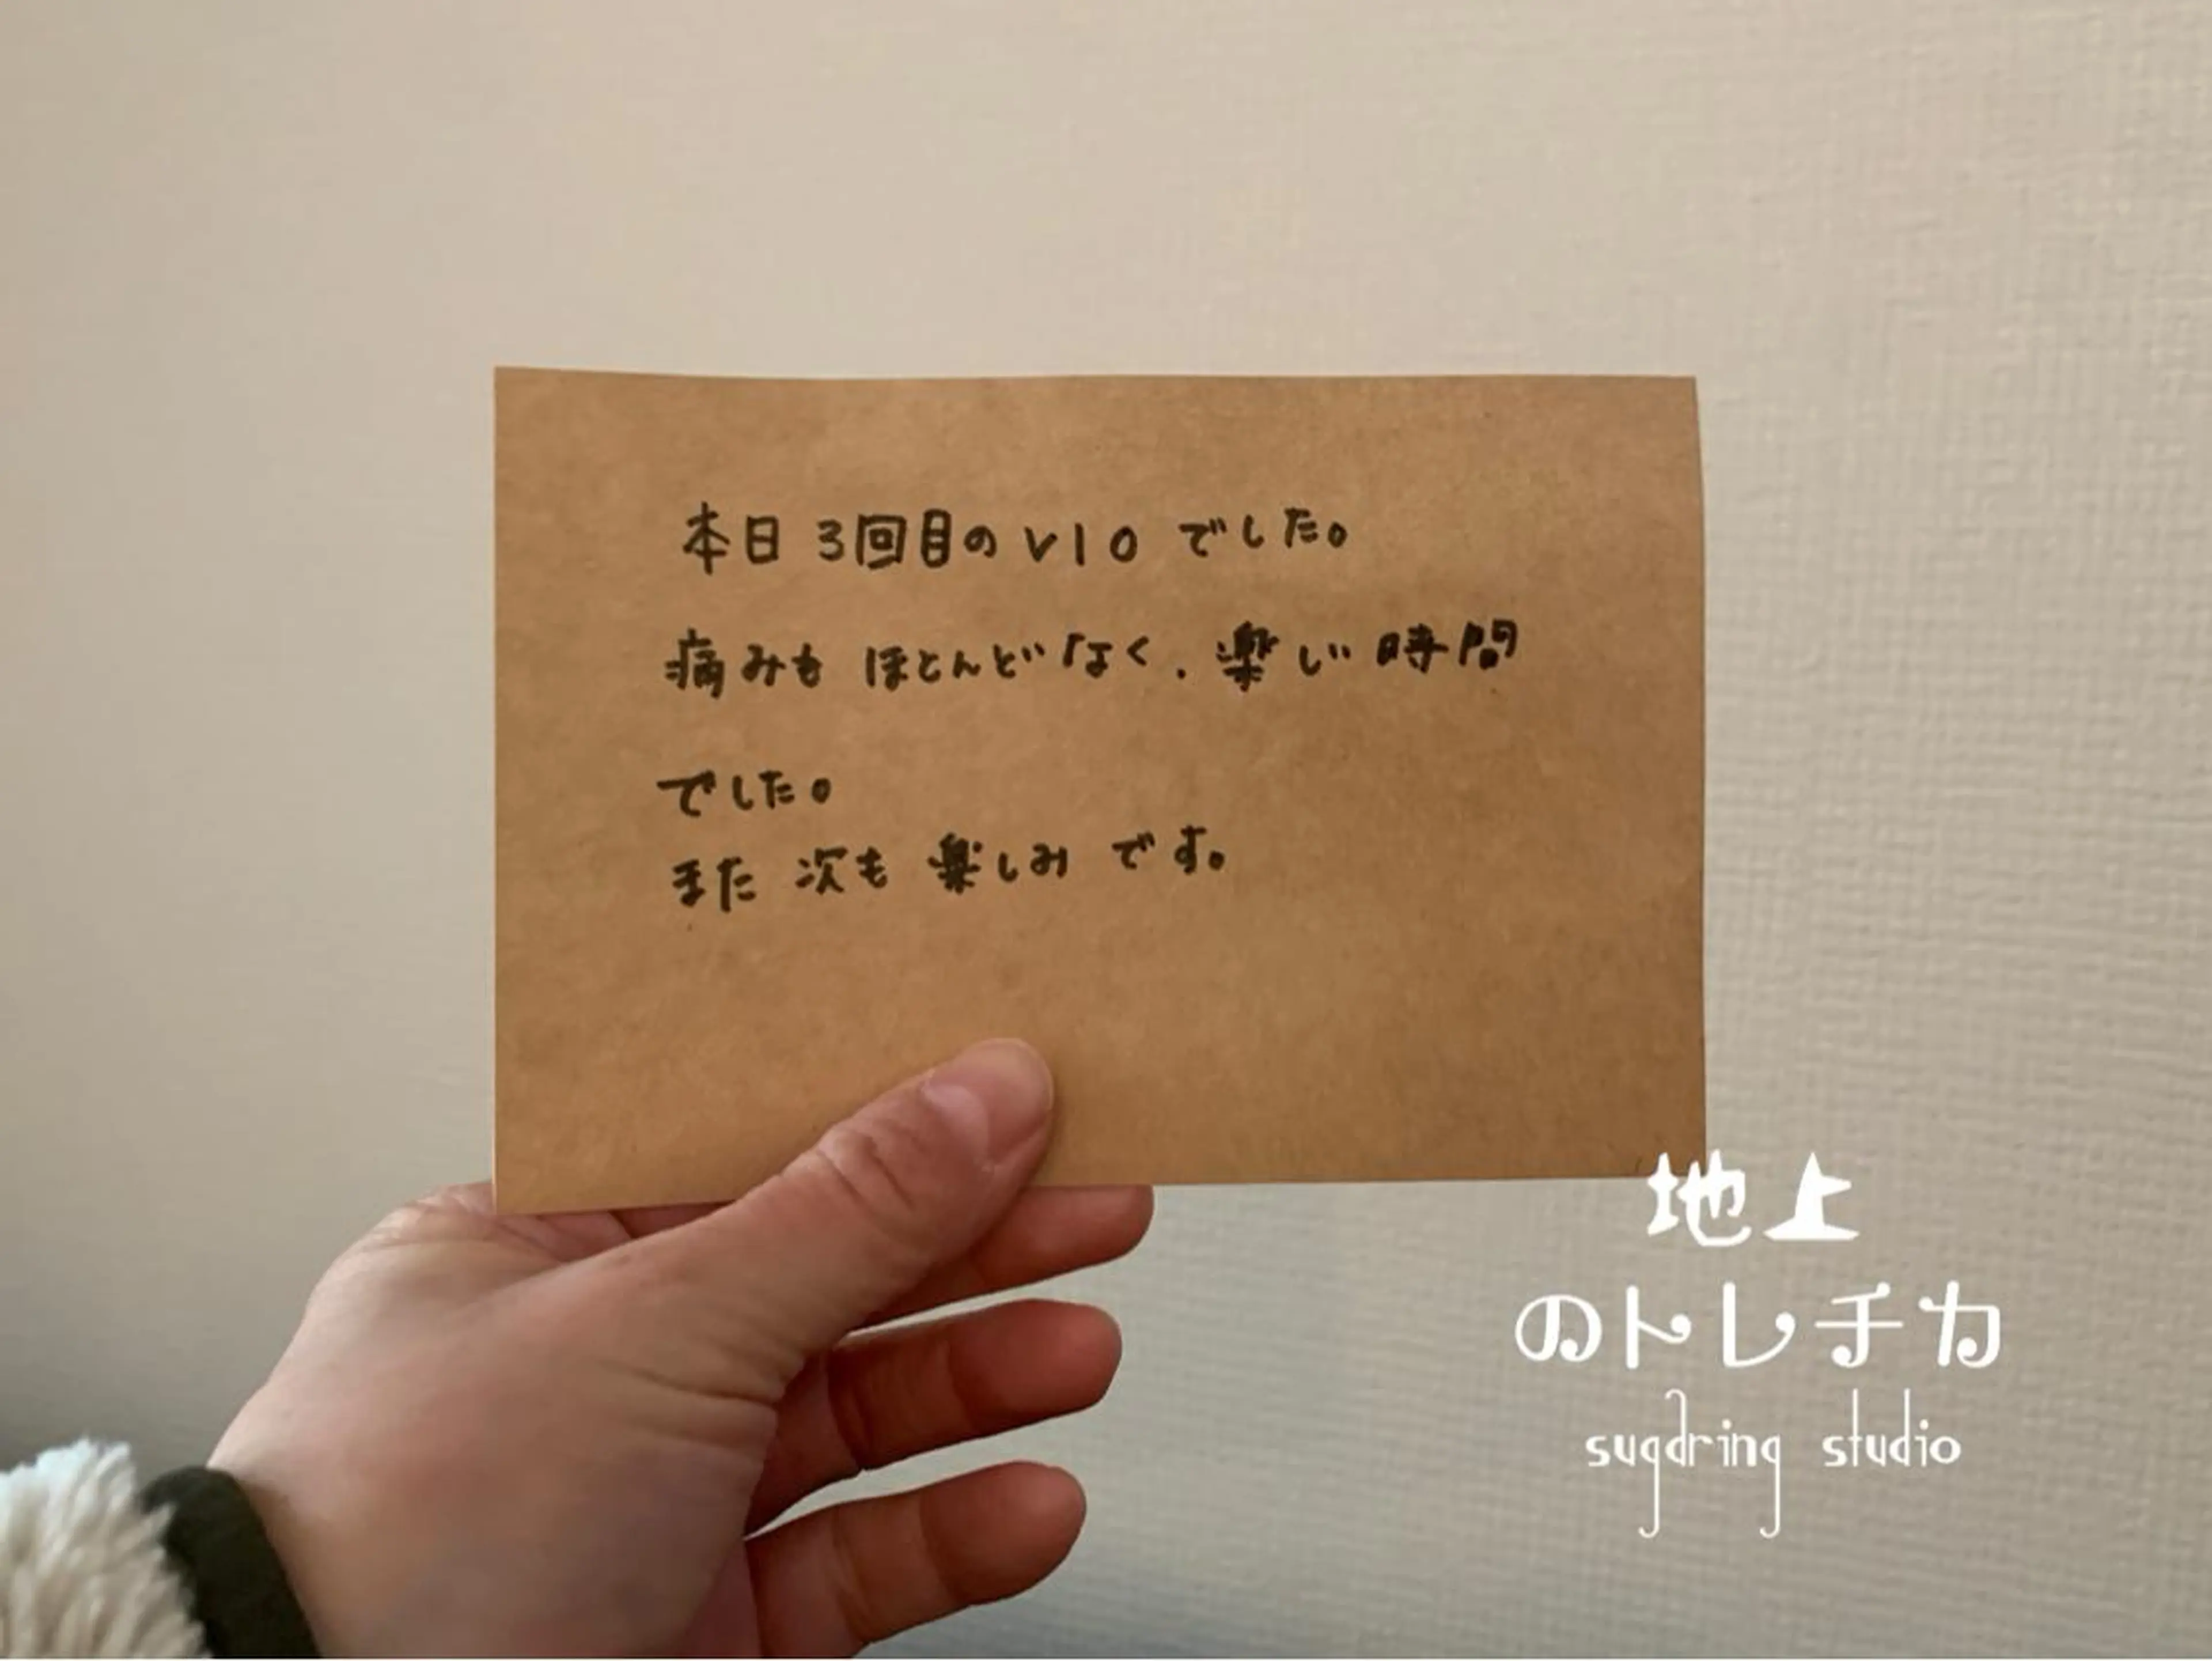 本日 3回目の VIO でした。
痛みも ほとんどなく、楽しい時間
でした。
また 次も 楽しみです。
地上
のトレチカ
sugaring studio